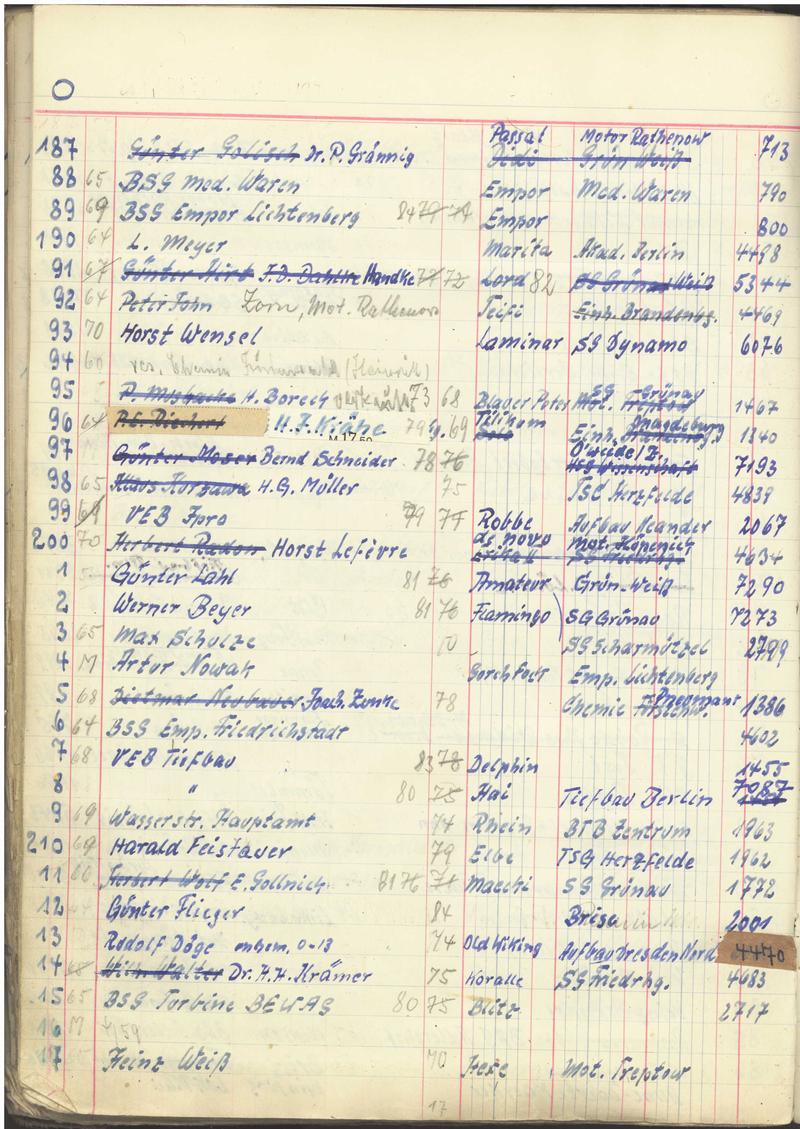 O
Passat Motor Rathenow
187 Günter Golisch Dr. P. Grännig Didi Grün Weiß 713
88 65 BSG Med. Waren Empor Med. Waren 790
89 69 BSG Empor Lichtenberg 84 79 74 Empor 800
190 64 L. Meyer Marita Akad. Berlin 4498
91 67 Günter Hirt J.D. Dahlke Handke 77 72 Lord 82 SG Grünau Weiß 5344
92 64 Peter John Zorn, Mot. Rathenow Teifi Einh. Brandenbg. 4469
93 70 Horst Wensel Laminar SG Dynamo 6076
94 60 res. Chemie (Heinrich)
SG Grünau
95 H. Borech verkauft 73 68 Blauer Peter Mot. 1467
Tilikum Magdeburg
96 64 P.C. Riechert H.J. Krähe 79 69 Einh. 1340
M 17,50
97 Günter Moser Bernd Schneider 78 76 HSG Wissenschaft 7193
98 65 Klaus H.G. Müller 75 TSC Herzfelde 4839
99 69 VEB Isro 79 77 Robbe Aufbau Neander 2067
de novo Mot. Köpenick
200 70 Herbert Radon Horst Lefèvre Erika II 4634
1 Günter Lahl 81 76 Amateur Grün-Weiß 7290
2 Werner Beyer 81 76 Flamingo SG Grünau 7273
3 65 Max Schulze 70 SG Scharmützel 2799
4 M Artur Nowak Gorch Fock Emp. Lichtenberg
Pneumant
5 68 Dietmar Neubauer Joach. Zenke 78 Chemie Fürstenw. 1386
6 64 BSG Emp. Friedrichstadt 4602
7 68 VEB Tiefbau 83 78 Delphin 1455
8 " 80 75 Hai Tiefbau Berlin 7087
9 69 Wasserstr. Hauptamt 74 Rhein BTB Zentrum 1963
210 69 Harald Feistauer 79 Elbe TSG Herzfelde 1962
11 60 Herbert Wolf E. Gollnich 81 76 71 Maechi SG Grünau 1772
12 Günter Flieger 84 Brise 2001
13 Rudolf Döge ehem. O-13 74 Old Wiking Aufbau Dresden Nord 4470
14 68 Wilh. Walter Dr. H.H. Krämer 75 Koralle SG Friedrhg. 4683
15 65 BSG Turbine BEWAG 80 75 Blitz 2717
16 M 4/59
17 Heinz Weiß 70 Hexe Mot. Treptow
17